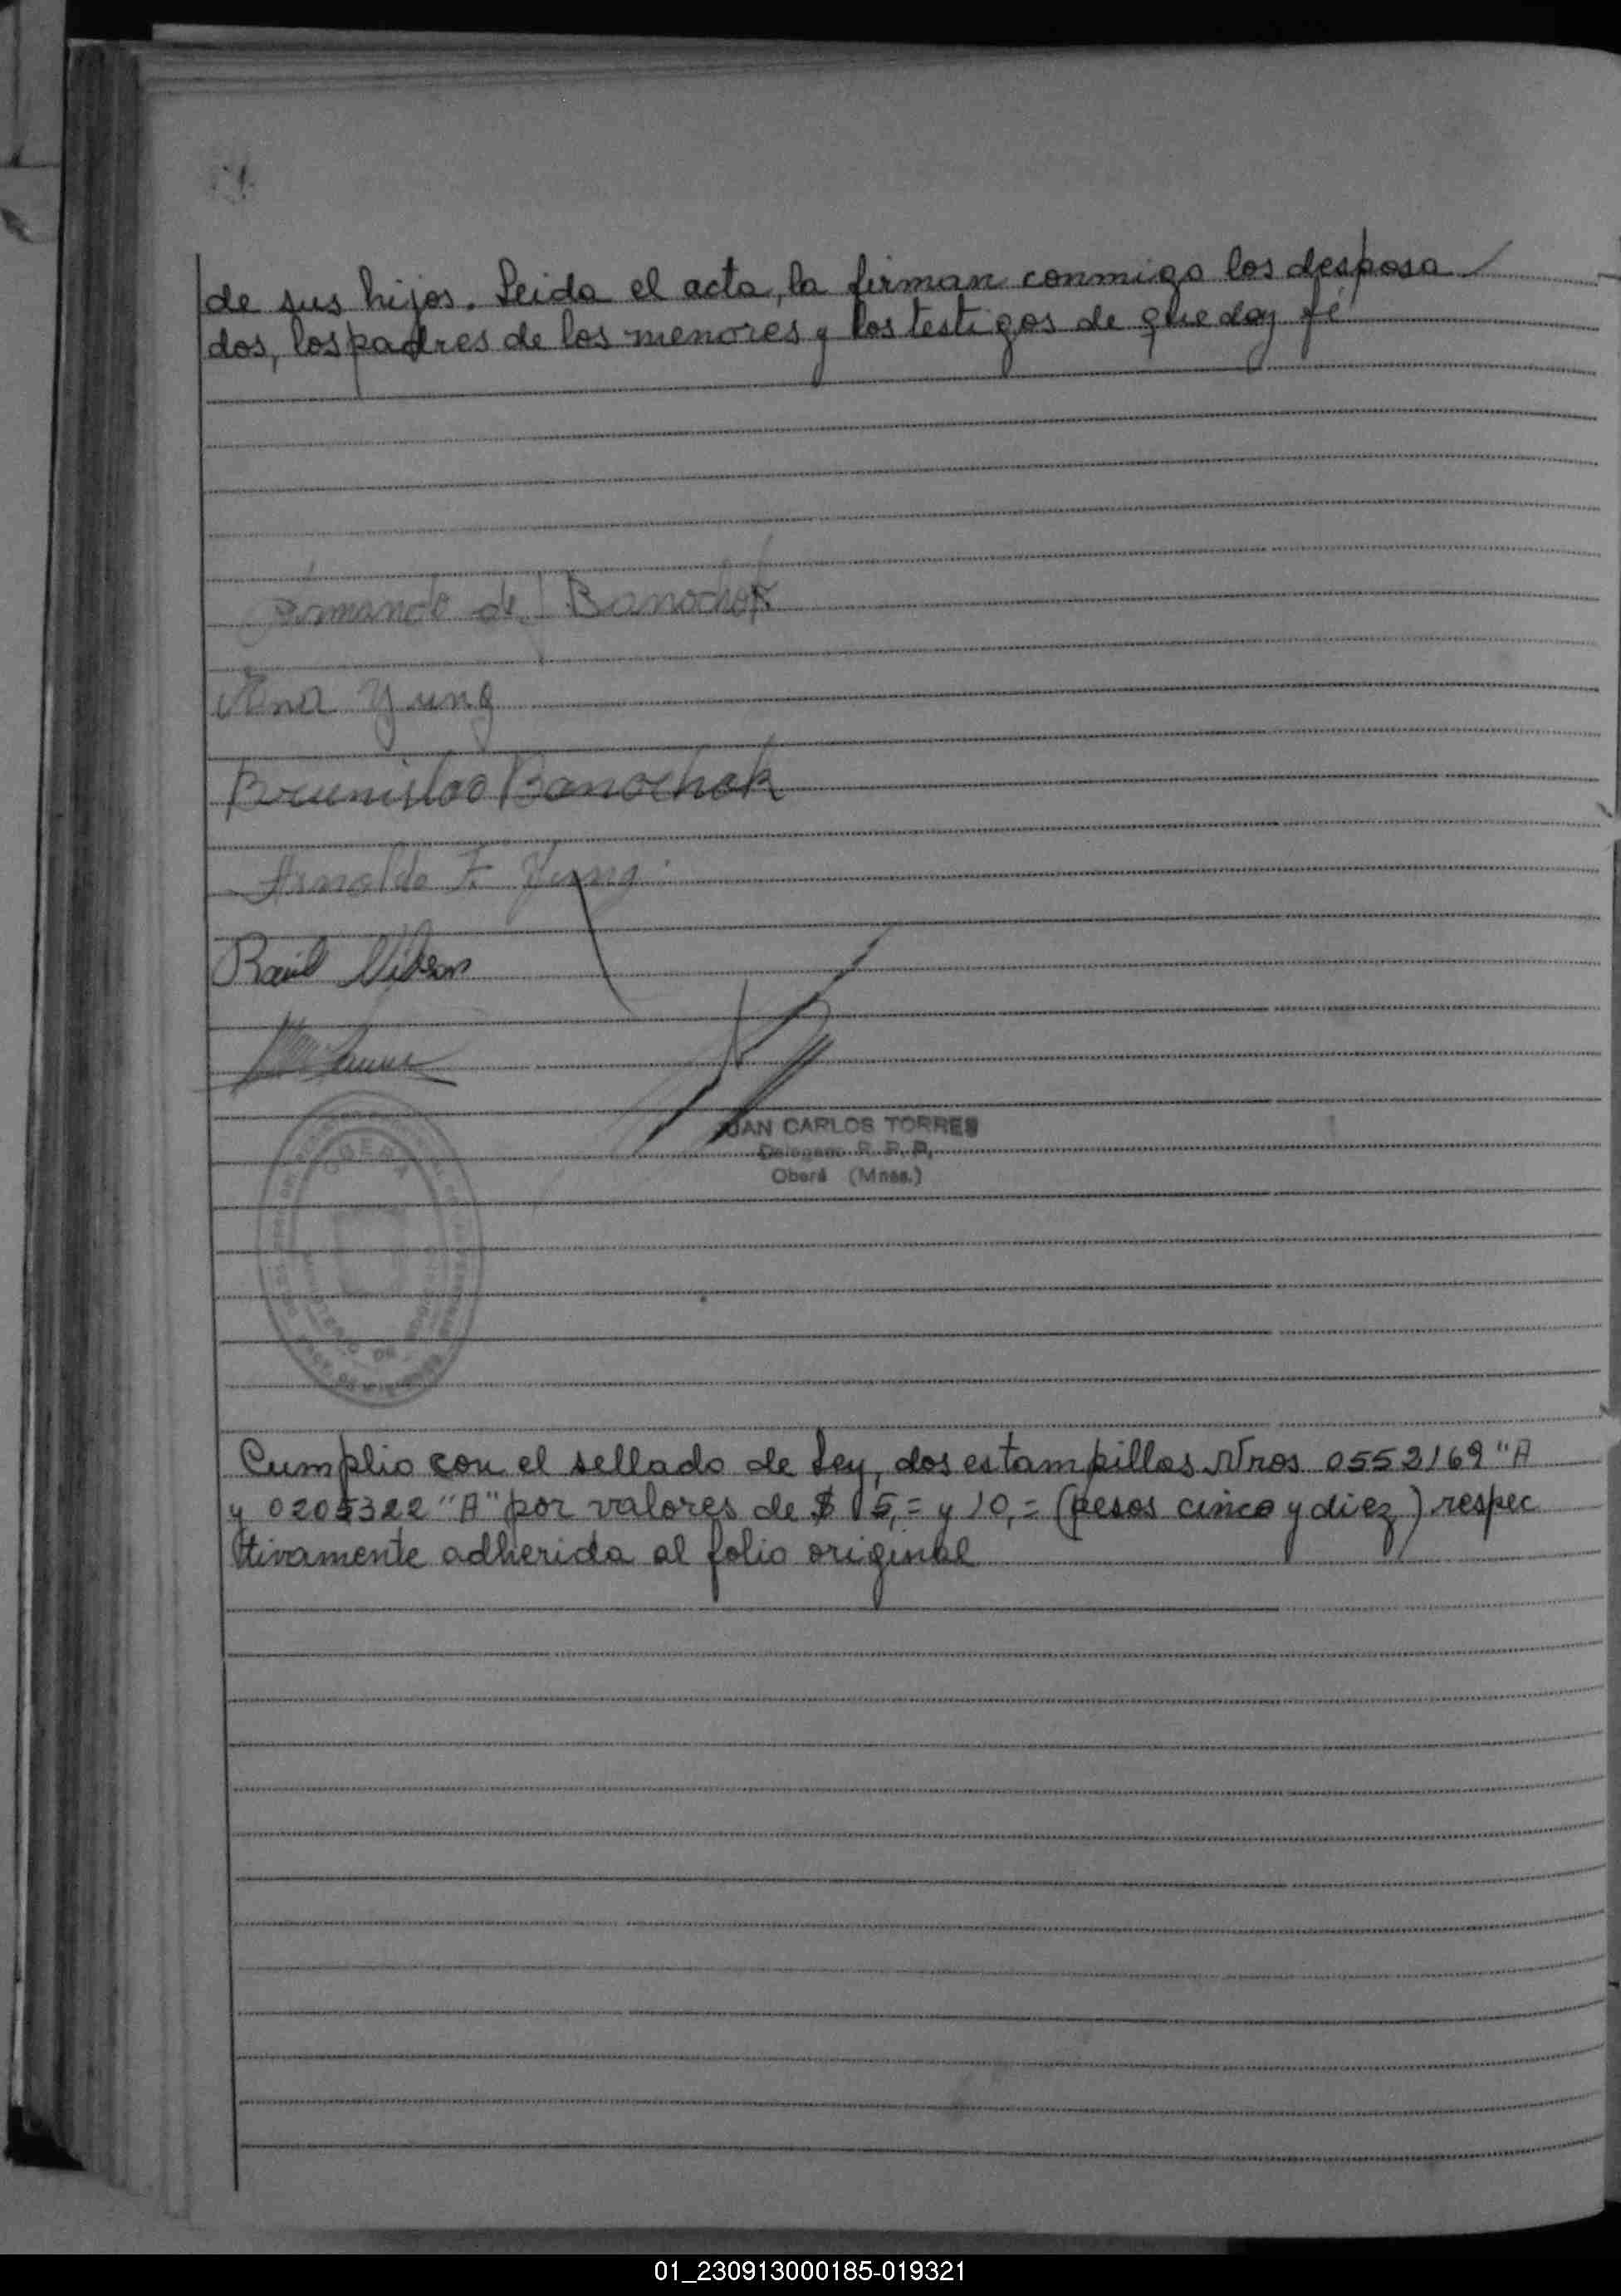 de sus hijos. Leida el acta, la firman conmigo los desposa/
dos, los padres de los menores y los testigos de que doy fé
Armando de J. Banochok
Ana Yung
Brunislao Banochok
Arnaldo F. Yung
Raúl
JUAN CARLOS TORRES
Delegado R. P. P.
Oberá (Mnes.)
Cumplio con el sellado de Ley, dos estampillas Nros 0552169 "A
y 0205322 "A" por valores de $ 5,= y 10,= (pesos cinco y diez) respec
ttivamente adherida al folio original
01_230913000185-019321